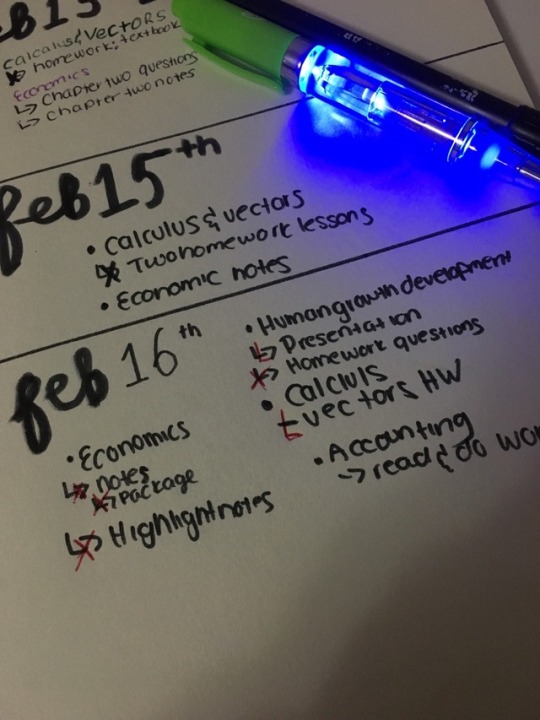 calculus & VECTORS
homework: textbook
Economics
↳ Chapter two questions
↳ Chapter two notes
feb 15th
• calculus & vectors
↳ Two homework lessons
• Economic notes
feb 16th
• Economics
↳ notes
↳ package
↳ Highlight notes
• Human growth development
↳ Presentation
↳ Homework questions
• calculs
+ vectors HW
• Accounting
→ read & do